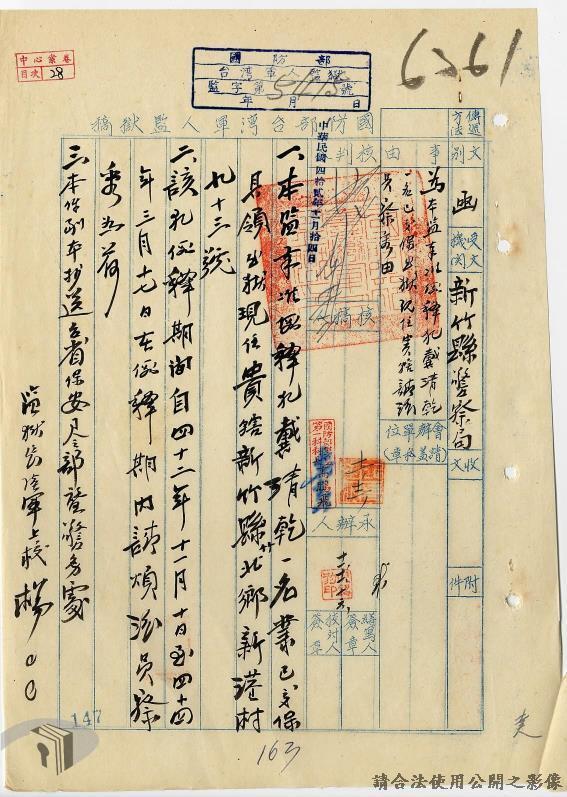 6361
中心案卷
目次 28
國防部
台灣軍人監獄
監字第5415號
年 月 日
國防部台灣軍人監獄稿
傳遞方法
文別
函
受文機關
新竹縣警察局
收文
附件
事由
為本監奉准假釋犯戴清乾
一名已交保出獄現住貴轄請派
員察考由
核判
中華民國四拾貳年十二月拾四日
核稿
會辦單位
(請蓋章)
承辦人
繕寫人簽章
校對人簽章
一、本監奉准假釋犯戴清乾一名業已交保
具領出獄現住貴轄新竹縣竹北鄉新港村
九十三號
二、該犯假釋期間自四十二年十一月十日至四十四
年三月十七日在假釋期內請煩派員察
考為荷
三、本件副本抄送台省保安司令部暨警務處
監獄長陸軍上校 楊〇〇
147
163
請合法使用公開之影像